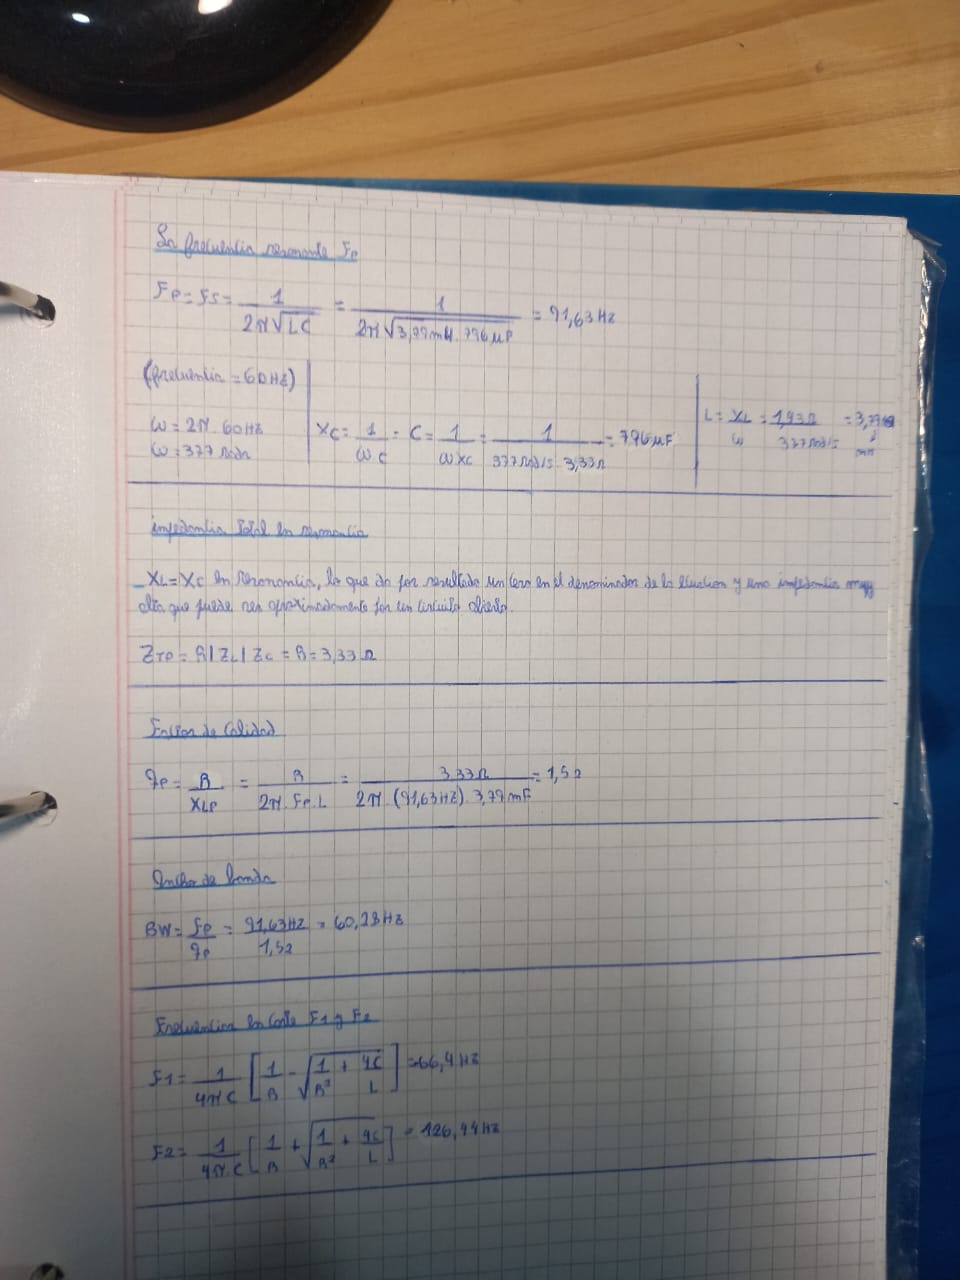 La frecuencia resonante Fp
Fp = Fs = 1 / 2π√LC = 1 / 2π√3,79mH . 796μF = 91,63 Hz
(frecuencia = 60Hz)
ω = 2π . 60Hz
ω = 377 rad/s
Xc = 1/ωC = C = 1/ωXc = 1 / 377 rad/s . 3,33Ω = 796μF
L = XL/ω = 1,43Ω / 377 rad/s = 3,79 mH
impedancia total en resonancia
_ XL = Xc en resonancia, lo que da por resultado un cero en el denominador de la ecuacion y una impedancia muy
alta que puede ser aproximadamente por un circuito abierto.
ZTP = R | ZL | Zc = R = 3,33 Ω
Factor de Calidad
qp = R/XLP = R / 2π . Fp . L = 3,33Ω / 2π . (91,63Hz) . 3,79mF = 1,52
Ancho de banda
BW = fp/qp = 91,63Hz / 1,52 = 60,28Hz
Frecuencia en corte F1 y F2
F1 = 1/4πC [1/R - √1/R² + 4C/L] = 66,4 Hz
F2 = 1/4π.C [1/R + √1/R² + 4C/L] = 126,44Hz